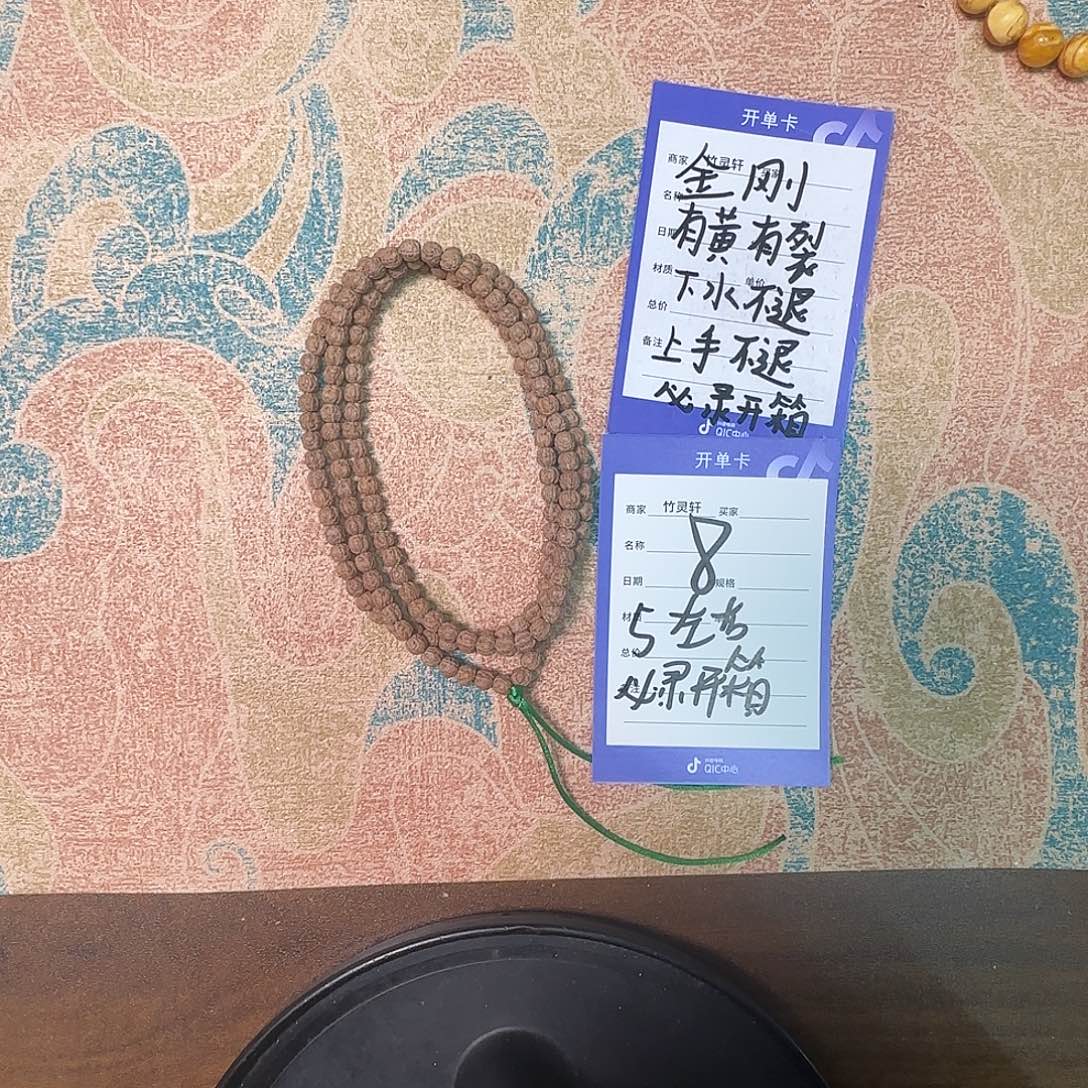 开单卡
商家 竹灵轩 买家
金刚
名称
有黄有裂
日期
下水不退
材质 单价
总价
上手不退
备注
必录开箱
QIC中心
开单卡
商家 竹灵轩 买家
名称
8
日期 规格
5左右
材质
总价
必录开箱
QIC中心